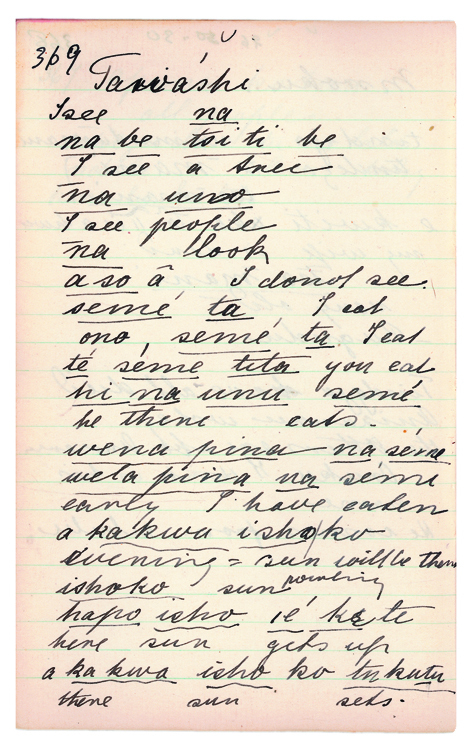 369
Tawáshi
I see na
na be tsi ti be
I see a tree
na uno
I see people
na look
a so a I do not see.
semé ta I eat
ono, semé ta I eat
té séme tita you eat
hi na unu semé
he there eats.
wena pina na sémé
weta pina na semi
early I have eaten
a kakwa ishoko
evening = sun will be there
ishoko sun
hapo isho ié ke te
here sun gets up
a ka kwa isho ko tukutu
there sun sets.